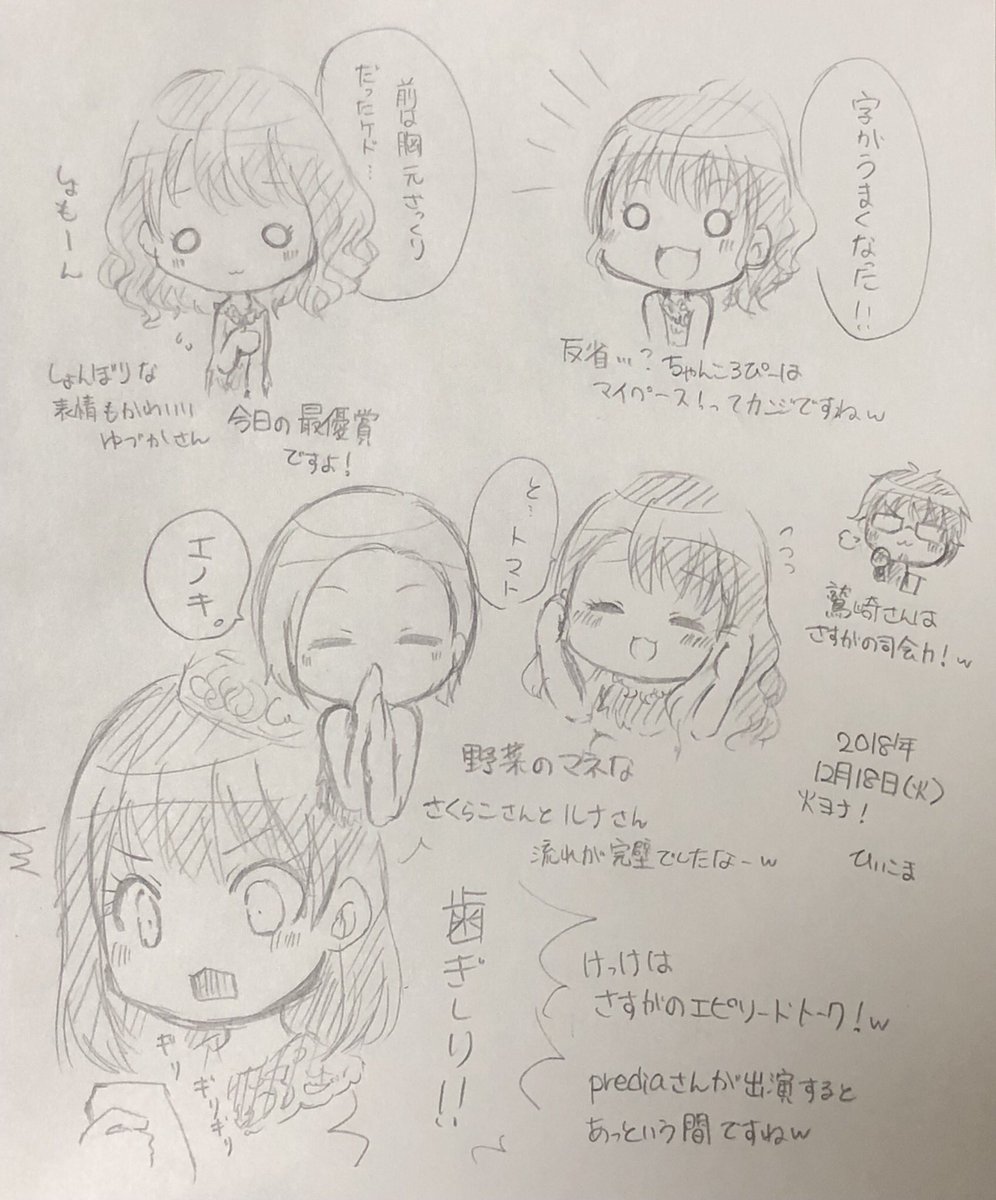 前は胸元ざっくり
だったケド…
しょもーん
しょんぼりな
表情もかわいい
ゆづかさん
今日の最優賞
ですよ!
字がうまくなった!!
反省…?ちゃんころぴーは
マイペース!ってカンジですねw
エノキ。
と…トマト
鷲崎さんは
さすがの司会力!w
野菜のマネな
さくらこさんとルナさん
流れが完璧でしたなーw
2018年
12月18日(火)
火ヨナ!
ひいこま
歯ぎしり!!
ギリ
ギリギリ
けっけは
さすがのエピソードトーク!w
prediaさんが出演すると
あっという間ですねw